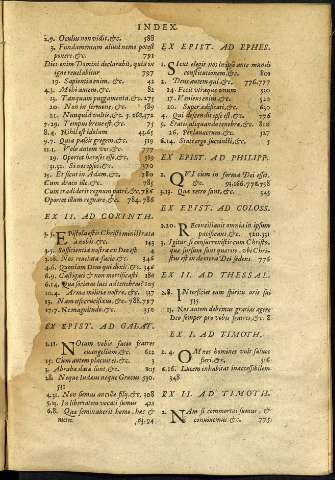 INDEX.
2.9. Oculus non vidit, &c. 588
3. Fundamentum aliud nemo potest
ponere, &c. 791
Dies enim Domini declarabit, quia in
igne revelabitur 797
19. Sapientia enim, &c. 42
4.3. Mihi autem, &c. 82
13. Tanquam purgamenta, &c. 275
20. Non in sermone, &c. 189
21. Nunquid vultis, &c.
7.29. Tempus breve est, &c. 75
8.4. Nihil est idolum 43.65
9.7. Quis pascit gregem, &c. 519
11.1. Volo autem vos, &c. 777
19. Oportet hereses esse, &c. 539
&c. 350
15. Et sicut in Adam, &c. 780
Cum dracone illo, &c. 785
Cum tradiderit regnum patri, &c. 786
Oportet illum regnare, &c. 784.786
EX II. AD CORINTH.
3.3. Epistola estis Christi ministrata
à nobis, &c. 343
3.5. Sufficientia nostra ex Deo est 4
2.16. Nos revelata facie, &c. 346
4.6. Quoniam Deus qui dixit, &c. 346
6.9. Castigati & non mortificati 180
6.14. Quæ societas luci ad tenebras? 105
10.4. Arma militiæ nostræ, &c. 317
13. Nam etsi crucifixus, &c. 788.797
17.7. Ne magnitudo, &c. 350
EX EPIST. AD GALAT.
1.11. Notum vobis facio fratres
evangelium, &c. 612
15. Cum autem placuit ei, &c. 222
3. Abrahæ dicta sunt, &c. 305
28. Neque Iudæus neque Græcus 530.
531
4.31. Non sumus ancillæ filij, &c. 308
5.13. In libertatem vocati sumus 422
6.8. Quæ seminaverit homo, hæc &
metet. pg. 24
EX EPIST. AD EPHES.
1. Sicut elegit nos in ipso ante mundi
constitutionem, &c. 809
2. Deus autem qui, &c. 776.777
14. Fecit utraque unum 520
17. Veniens enim, &c. 520
20. Super ædificati, &c. 630
4. Qui descendit ipse est, &c. 776
5. Etatis aliquando tenebræ, &c. 818
26. Per lavacrum, &c. 527
6.14. State ergo succincti, &c. 5
EX EPIST. AD PHILIPP.
2. Qui cum in forma Dei esset,
&c. 75.166.776.798
3.13. Quæ retro sunt, &c. 325
EX EPIST. AD COLOSS.
2.20. Reconciliavit omnia in ipsum
pacificans, &c. 520.531
3. Igitur si consurrexistis cum Christo,
quæ sursum sunt quærite, ubi Chri-
stus est in dextera Dei sedens 776
EX II. AD THESSAL.
2.8. Interficiet eum spiritu oris sui
535
13. Nos autem debemus gratias agere
Deo semper pro vobis fratres, &c. 8
EX I. AD TIMOTH.
2.4. Omnes homines vult salvos
fieri, &c. 516
6.16. Lucem inhabitat inaccessibilem
348
EX II. AD TIMOTH.
2. Nam si commortui sumus, &
convivemus &c. 775